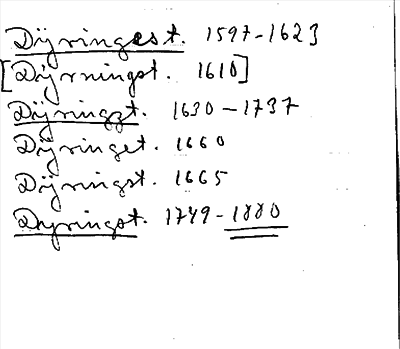 Dÿringest. 1597-1623
[Dÿrningst. 1610]
Dÿringzt. 1630-1737
Dÿringet. 1660
Dÿringst. 1665
Dyringst. 1749-1880